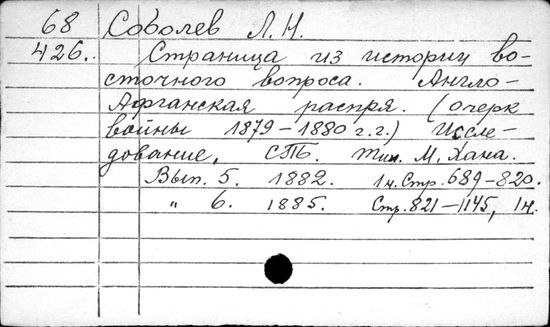 68 Соболев Л. Н.
426.. Страница из истории во-
сточного вопроса. Англо-
Афганская распря. (очерк
войны 1879–1880 г.г.) Иссле-
дование, СПБ. тип. М. Хана.
Вып. 5. 1882. 1н. Стр. 689–820.
" 6. 1885. Стр. 821–1145, 1н.